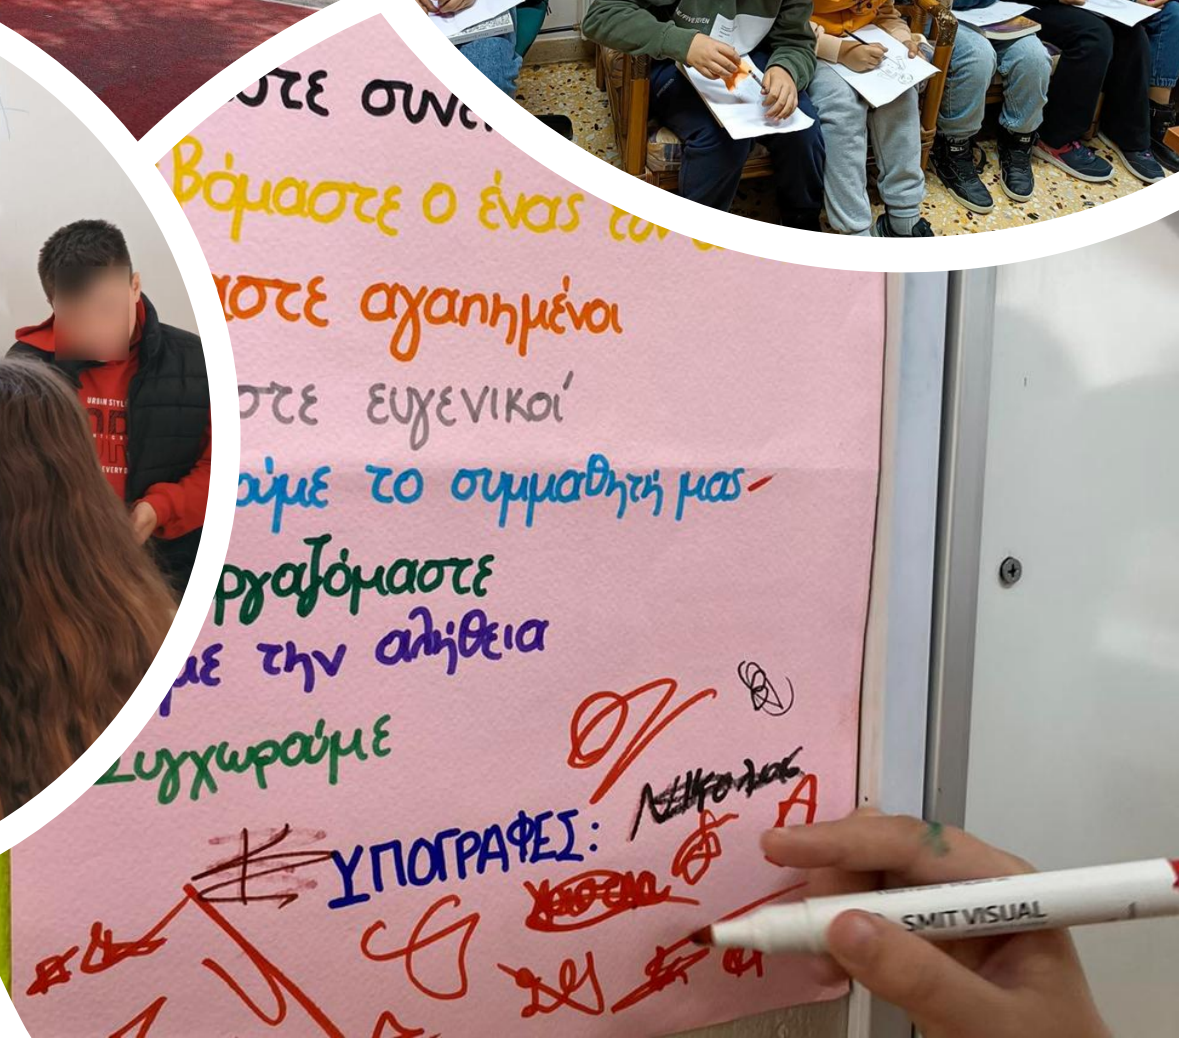 στε συνε
βόμαστε ο ένας τον
αστε αγαπημένοι
στε ευγενικοί
ούμε το συμμαθητή μας
ργαζόμαστε
με την αλήθεια
Συγχωρούμε
ΥΠΟΓΡΑΦΕΣ:
Νικόλας
SMIT VISUAL
URBAN STYL
EVERY D